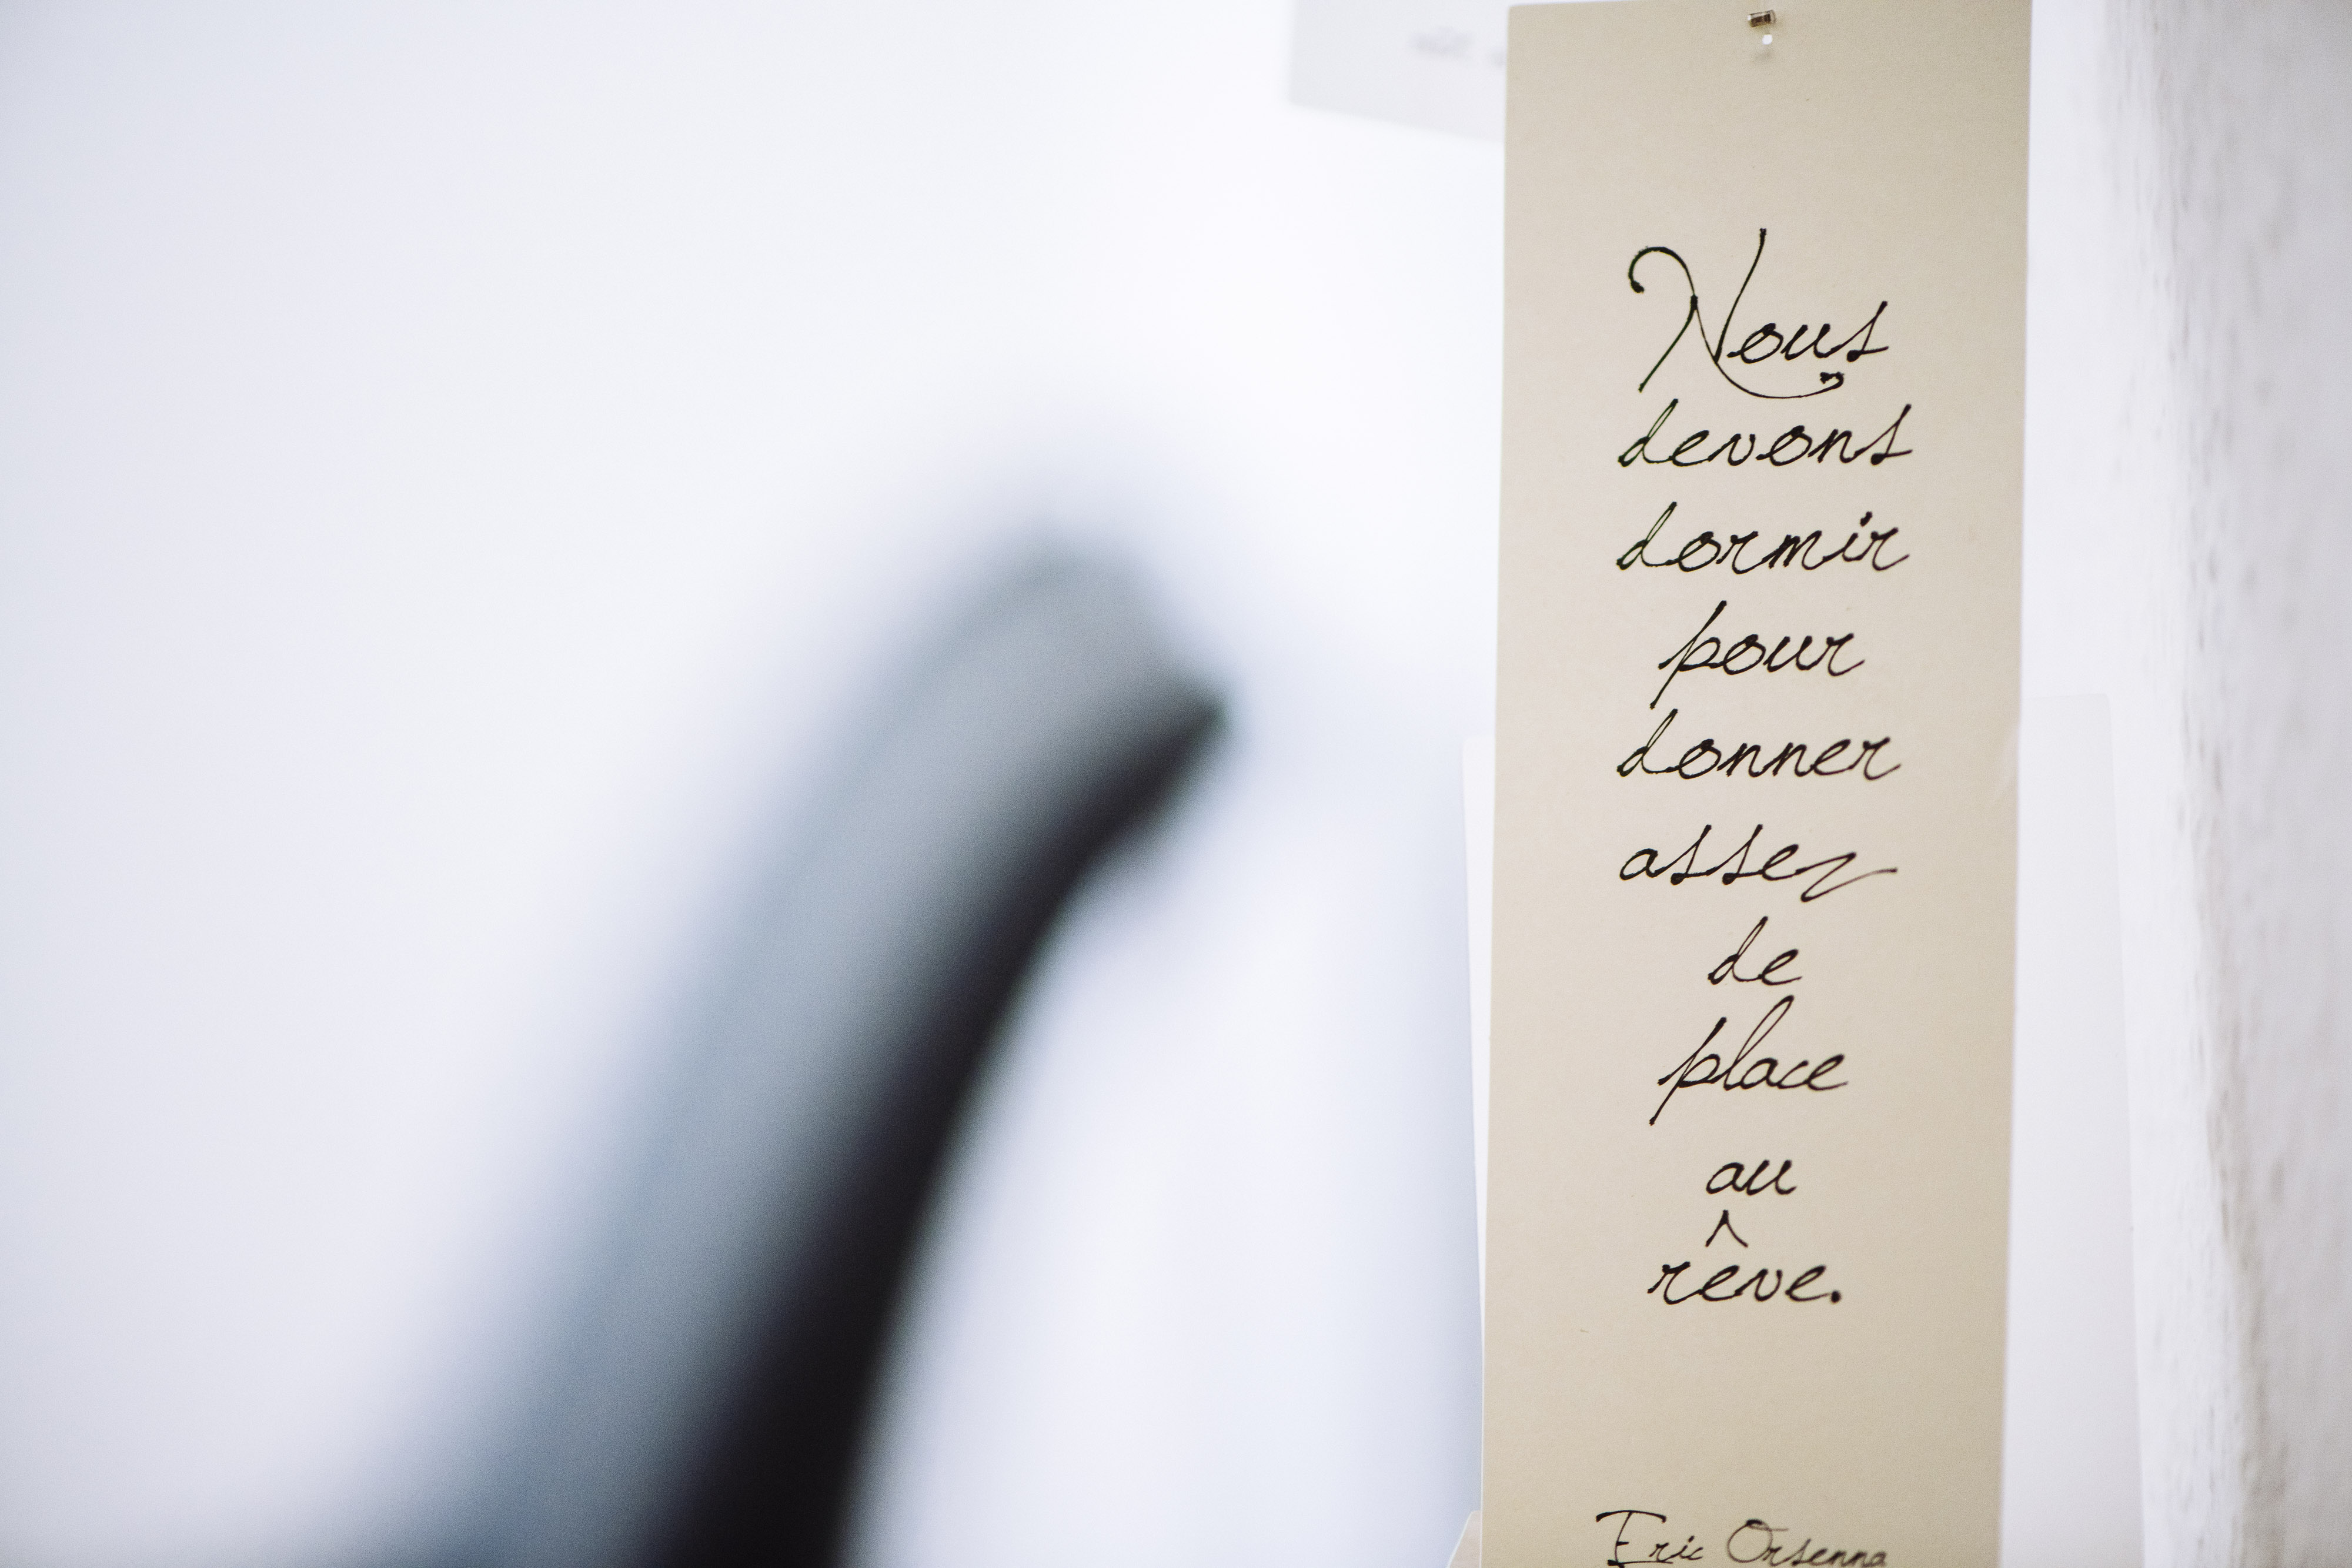 Nous
devons
dormir
pour
donner
assez
de
place
au
rêve.
Eric Orsenna